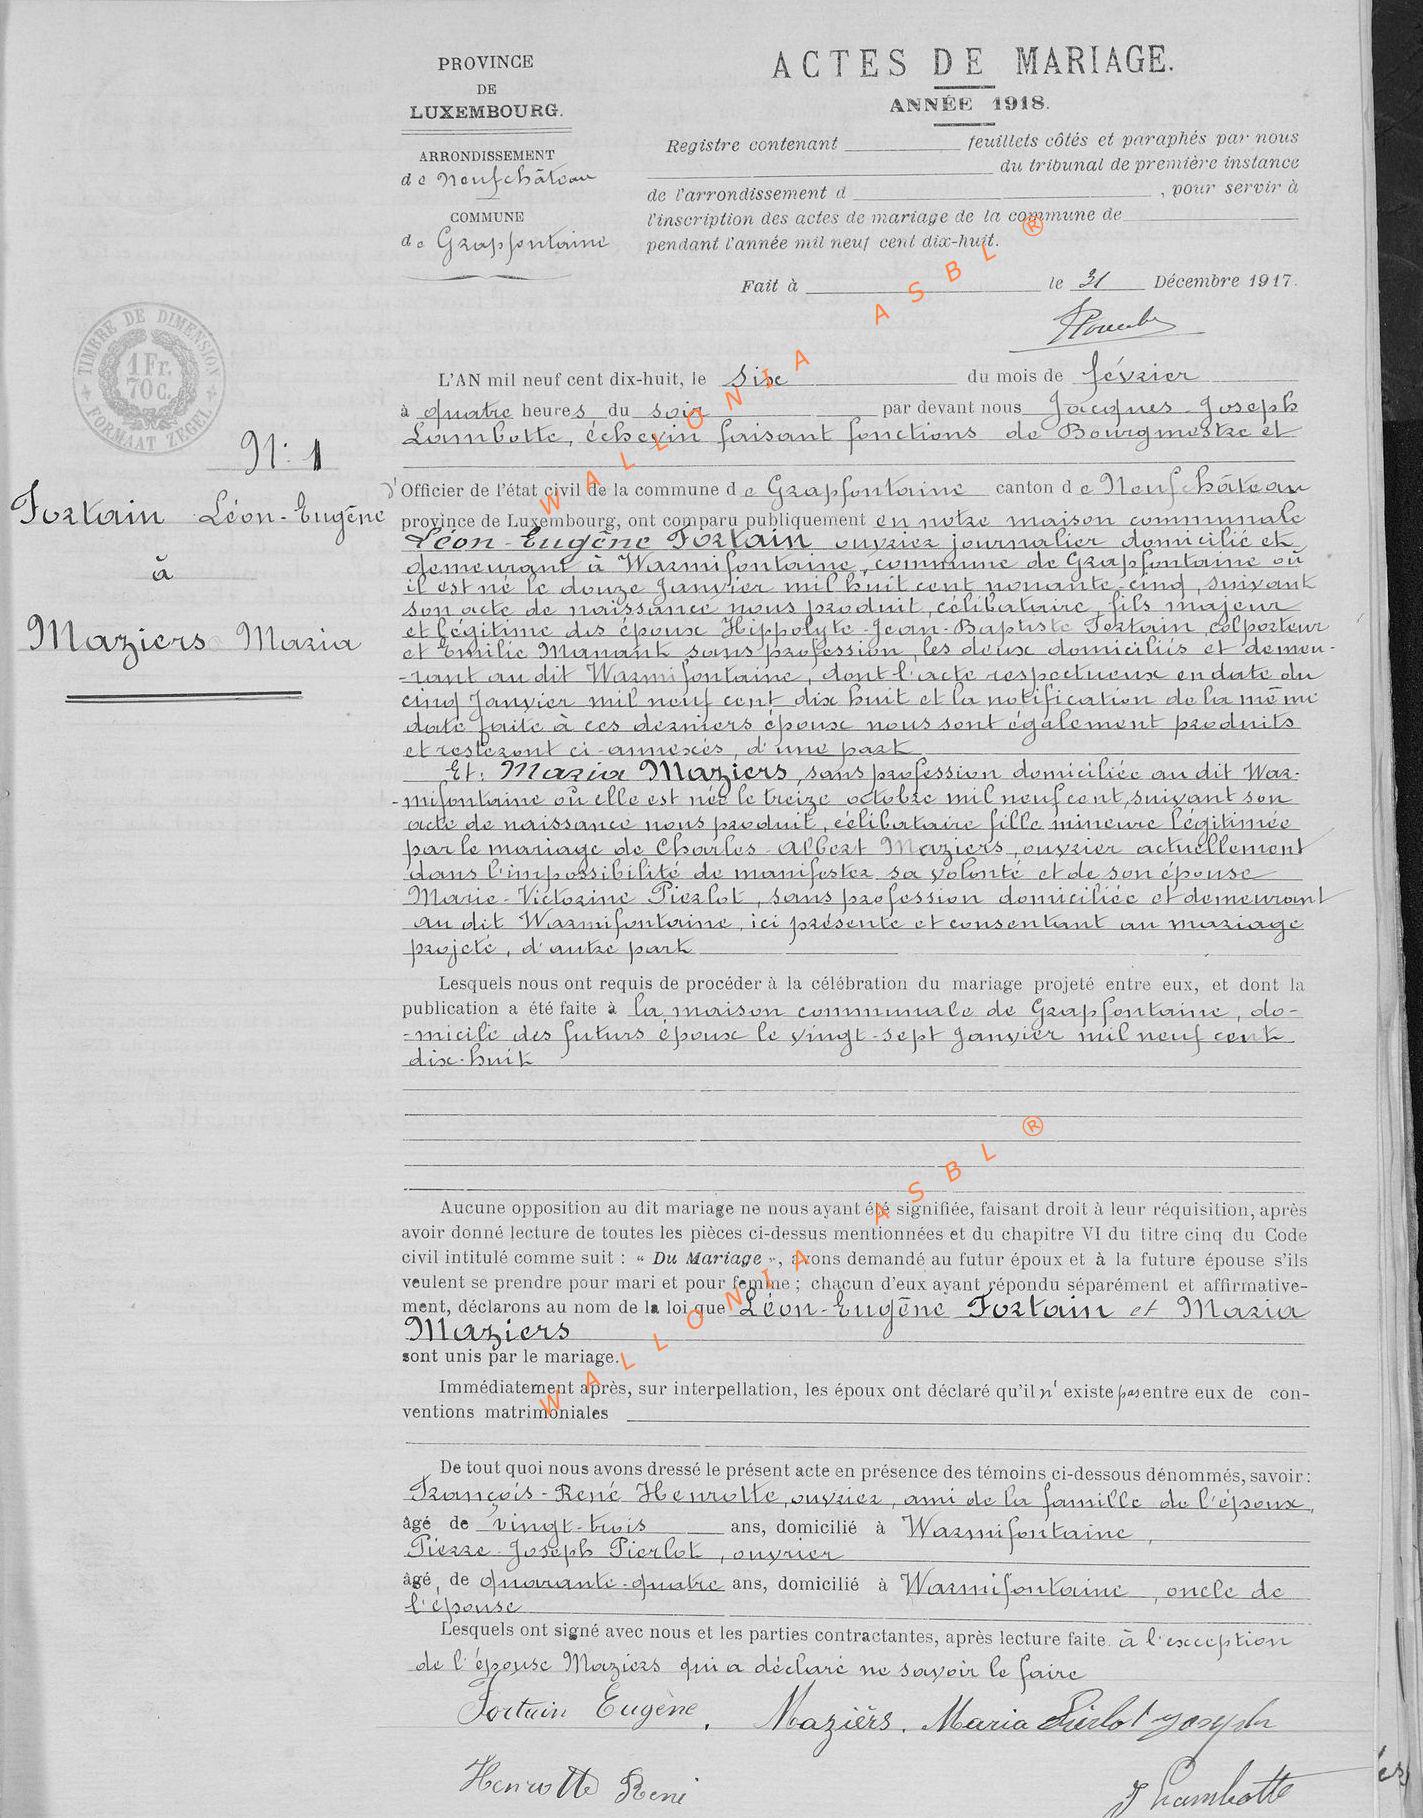 PROVINCE
DE
LUXEMBOURG.
ARRONDISSEMENT
de Neufchâteau
COMMUNE
de Grapfontaine
ACTES DE MARIAGE.
ANNÉE 1918.
Registre contenant feuillets côtés et paraphés par nous
du tribunal de première instance
de l'arrondissement d , pour servir à
l'inscription des actes de mariage de la commune de
pendant l'année mil neuf cent dix-huit.
Fait à le 31 Décembre 1917.
TIMBRE DE DIMENSION
1 Fr.
70 C.
FORMAAT ZEGEL
N: 1
Fortain Léon-Eugène
à
Maziers Maria
L'AN mil neuf cent dix-huit, le six du mois de février
à quatre heures du soir par devant nous Jacques-Joseph
Lambotte, échevin faisant fonctions de Bourgmestre et
d'Officier de l'état civil de la commune de Grapfontaine canton de Neufchâteau
province de Luxembourg, ont comparu publiquement en notre maison communale
Léon-Eugène Fortain ouvrier journalier domicilié et
demeurant à Warmifontaine, commune de Grapfontaine où
il est né le douze Janvier mil huit cent nonante-cinq, suivant
son acte de naissance nous produit, célibataire, fils majeur
et légitime des époux Hippolyte-Jean-Baptiste Fortain, colporteur
et Emilie Manant sans profession, les deux domiciliés et demeu-
-rant au dit Warmifontaine, dont l'acte respectueux en date du
cinq Janvier mil neuf cent dix huit et la notification de la même
date faite à ces derniers époux nous sont également produits
et resteront ci-annexés, d'une part
Et: Maria Maziers, sans profession domiciliée au dit War-
-mifontaine où elle est née le treize octobre mil neuf cent, suivant son
acte de naissance nous produit, célibataire fille mineure légitimée
par le mariage de Charles-Albert Maziers, ouvrier actuellement
dans l'impossibilité de manifester sa volonté et de son épouse
Marie-Victorine Pierlot, sans profession domiciliée et demeurant
au dit Warmifontaine, ici présente et consentant au mariage
projeté, d'autre part
Lesquels nous ont requis de procéder à la célébration du mariage projeté entre eux, et dont la
publication a été faite à la maison communale de Grapfontaine, do-
-micile des futurs époux le vingt-sept Janvier mil neuf cent
dix-huit
Aucune opposition au dit mariage ne nous ayant été signifiée, faisant droit à leur réquisition, après
avoir donné lecture de toutes les pièces ci-dessus mentionnées et du chapitre VI du titre cinq du Code
civil intitulé comme suit : « Du Mariage », avons demandé au futur époux et à la future épouse s'ils
veulent se prendre pour mari et pour femme ; chacun d'eux ayant répondu séparément et affirmative-
ment, déclarons au nom de la loi que Léon-Eugène Fortain et Maria
Maziers
sont unis par le mariage.
Immédiatement après, sur interpellation, les époux ont déclaré qu'il n'existe pas entre eux de con-
ventions matrimoniales
De tout quoi nous avons dressé le présent acte en présence des témoins ci-dessous dénommés, savoir :
François-René Henrotte, ouvrier, ami de la famille de l'époux,
âgé de vingt-trois ans, domicilié à Warmifontaine,
Pierre-Joseph Pierlot, ouvrier
âgé de quarante-quatre ans, domicilié à Warmifontaine, oncle de
l'épouse
Lesquels ont signé avec nous et les parties contractantes, après lecture faite. à l'exception
de l'épouse Maziers qui a déclaré ne savoir le faire
Fortain Eugène. Mazièrs. Maria Pierlot Joseph
Henrotte René J Lambotte
WALLONIA ASBL ®
WALLONIA ASBL ®